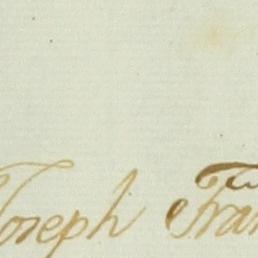 Joseph Fran